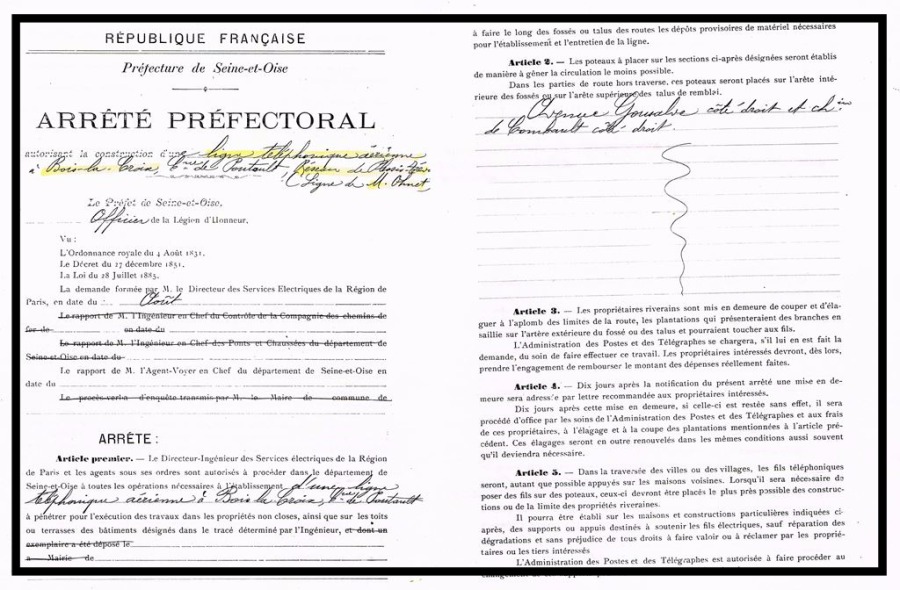 RÉPUBLIQUE FRANÇAISE
Préfecture de Seine-et-Oise
ARRÊTÉ PRÉFECTORAL
autorisant la construction d'une ligne téléphonique aérienne
à Bois-la-Croix, Cne de Pontault, Réseau de
(Ligne de M. Ohnet
Le Préfet de Seine-et-Oise,
Officier de la Légion d'Honneur,
Vu :
L'Ordonnance royale du 4 Août 1831.
Le Décret du 27 décembre 1851.
La Loi du 28 Juillet 1885.
La demande formée par M. le Directeur des Services Electriques de la Région de
Paris, en date du Août
Le rapport de M. l'Ingénieur en Chef du Contrôle de la Compagnie des chemins de
fer de en date du
Le rapport de M. l'Ingénieur en Chef des Ponts et Chaussées du département de
Seine-et-Oise en date du
Le rapport de M. l'Agent-Voyer en Chef du département de Seine-et-Oise en
date du
Le procès-verbal d'enquête transmis par M. le Maire de commune de
ARRÊTE :
Article premier. — Le Directeur-Ingénieur des Services électriques de la Région
de Paris et les agents sous ses ordres sont autorisés à procéder dans le département de
Seine-et-Oise à toutes les opérations nécessaires à l'établissement d'une ligne
téléphonique aérienne à Bois la Croix, Cne de Pontault
à pénétrer pour l'exécution des travaux dans les propriétés non closes, ainsi que sur les toits
ou terrasses des bâtiments désignés dans le tracé déterminé par l'Ingénieur, et dont un
exemplaire a été déposé le
a Mairie de
à faire le long des fossés ou talus des routes les dépôts provisoires de matériel nécessaires
pour l'établissement et l'entretien de la ligne.
Article 2. — Les poteaux à placer sur les sections ci-après désignées seront établis
de manière à gêner la circulation le moins possible.
Dans les parties de route hors traverse, ces poteaux seront placés sur l'arête inté-
rieure des fossés ou sur l'arête supérieure des talus de remblai.
Avenue Gonsalve côté droit et chin
de Combault côté droit.
Article 3. — Les propriétaires riverains sont mis en demeure de couper et d'éla-
guer à l'aplomb des limites de la route, les plantations qui présenteraient des branches en
saillie sur l'artère extérieure du fossé ou des talus et pourraient toucher aux fils.
L'Administration des Postes et des Télégraphes se chargera, s'il lui en est fait la
demande, du soin de faire effectuer ce travail. Les propriétaires intéressés devront, dès lors,
prendre l'engagement de rembourser le montant des dépenses réellement faites.
Article 4. — Dix jours après la notification du présent arrêté une mise en de-
meure sera adressée par lettre recommandée aux propriétaires intéressés.
Dix jours après cette mise en demeure, si celle-ci est restée sans effet, il sera
procédé d'office par les soins de l'Administration des Postes et des Télégraphes et aux frais
de ces propriétaires, à l'élagage et à la coupe des plantations mentionnées à l'article pré-
cédent. Ces élagages seront en outre renouvelés dans les mêmes conditions aussi souvent
qu'il deviendra nécessaire.
Article 5. — Dans la traversée des villes ou des villages, les fils téléphoniques
seront, autant que possible appuyés sur les maisons voisines. Lorsqu'il sera nécessaire de
poser des fils sur des poteaux, ceux-ci devront être placés le plus près possible des construc-
tions ou de la limite des propriétés riveraines.
Il pourra être établi sur les maisons et constructions particulières indiquées ci-
après, des supports ou appuis destinés à soutenir les fils électriques, sauf réparation des
dégradations et sans préjudice de tous droits à faire valoir ou à réclamer par les proprié-
taires ou les tiers intéressés
L'Administration des Postes et des Télégraphes est autorisée à faire procéder au